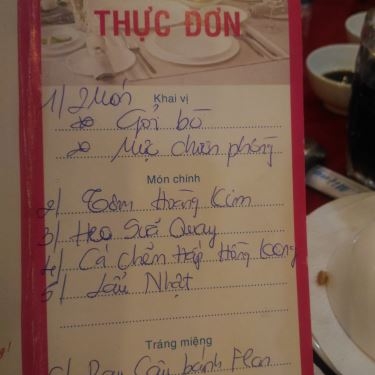 THỰC ĐƠN
1/ 2 Món Khai vị
Gỏi bò
Mực chiên phồng
Món chính
2/ Tôm Hoàng Kim
3/ Heo Sữa Quay
4/ Cá Chẽm Hấp Hồng Kong
5/ Lẩu Nhật
Tráng miệng
6/ Rau Câu bánh Flan